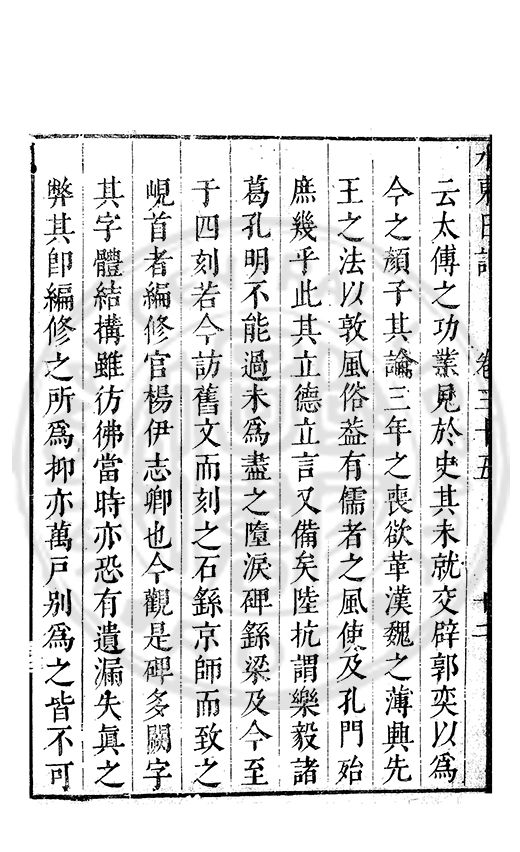 水東日記 卷三十五 十二
云太傅之功業見於史其未就交辟郭奕以爲
今之顏子其論三年之喪欲革漢魏之薄興先
王之法以敦風俗益有儒者之風使及孔門始
庶幾乎此其立德立言又備矣陸抗謂樂毅諸
葛孔明不能過未爲盡之墮淚碑繇梁及今至
于四刻若今訪舊文而刻之石繇京師而致之
峴首者編修官楊伊志卿也今觀是碑多闕字
其字體結構雖彷彿當時亦恐有遺漏失眞之
弊其卽編修之所爲抑亦萬戸别爲之皆不可